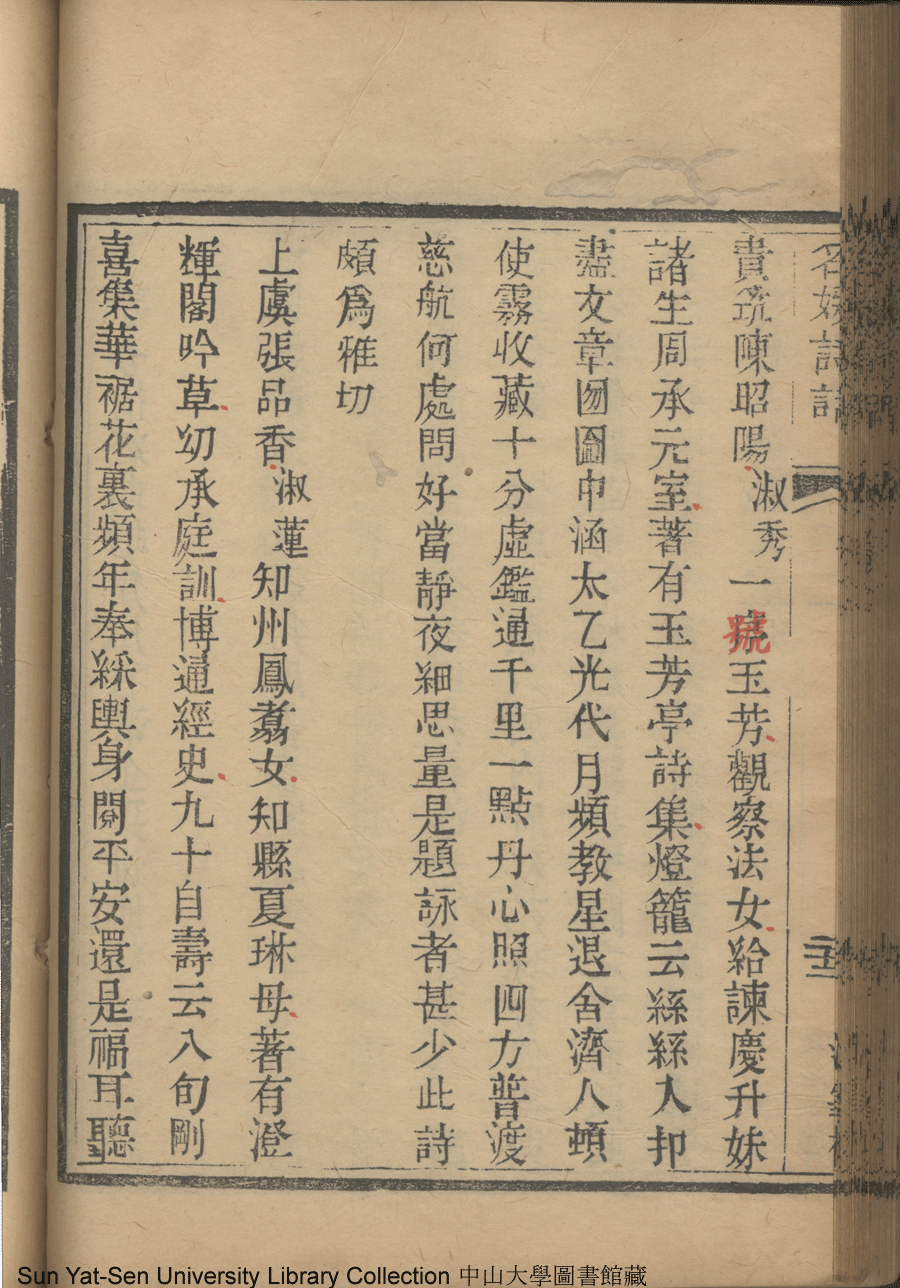 名媛詩話
貴筑陳昭陽淑秀一號玉芳觀察法女給諫慶升妹
諸生周承元室著有玉芳亭詩集燈籠云絲絲入扣
盡文章囫圇中涵太乙光代月頻教星退舍濟人頓
使霧收藏十分虛鑑通千里一點丹心照四方普渡
慈航何處問好當靜夜細思量是題詠者甚少此詩
頗爲雅切
上虞張品香淑蓮知州鳳翥女知縣夏琳母著有澄
輝閣吟草幼承庭訓博通經史九十自壽云八旬剛
喜集華裾花裏頻年奉綵輿身閱平安還是福耳聽
Sun Yat-Sen University Library Collection 中山大學圖書館藏